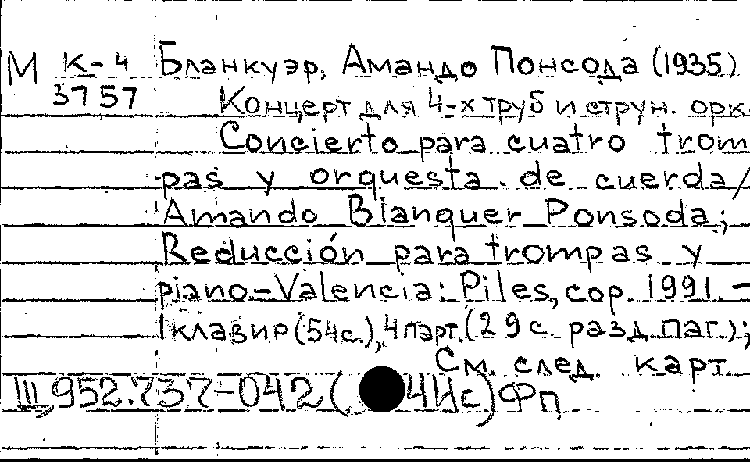 М К-4 Бланкуэр, Амандо Понсода (1935)
3757 Концерт для 4-х труб и струн. орк.
Concierto para cuatro trom
pas y orquesta de cuerda/
Amando Blanquer Ponsoda;
Reducción para trompas y
piano.-Valencia: Piles, cop. 1991.-
1клавир(54с.), 4парт.(29с разд.паг.);
См. след. карт
III,952.737-042( 4Ис)Фп